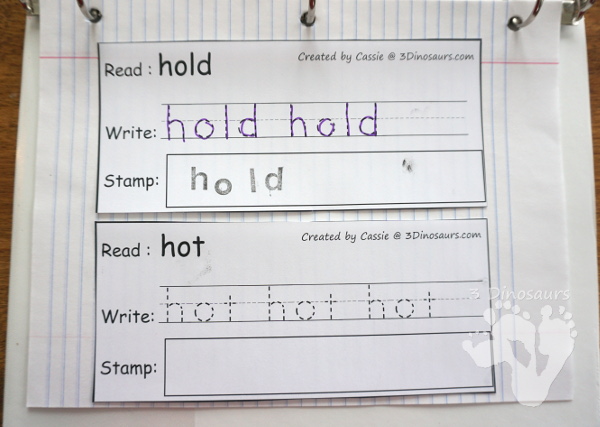 Read : hold
Created by Cassie @ 3Dinosaurs.com
Write: hold hold
Stamp: hold
Read : hot
Created by Cassie @ 3Dinosaurs.com
Write: hot hot hot
Stamp:
3 Dinosaurs